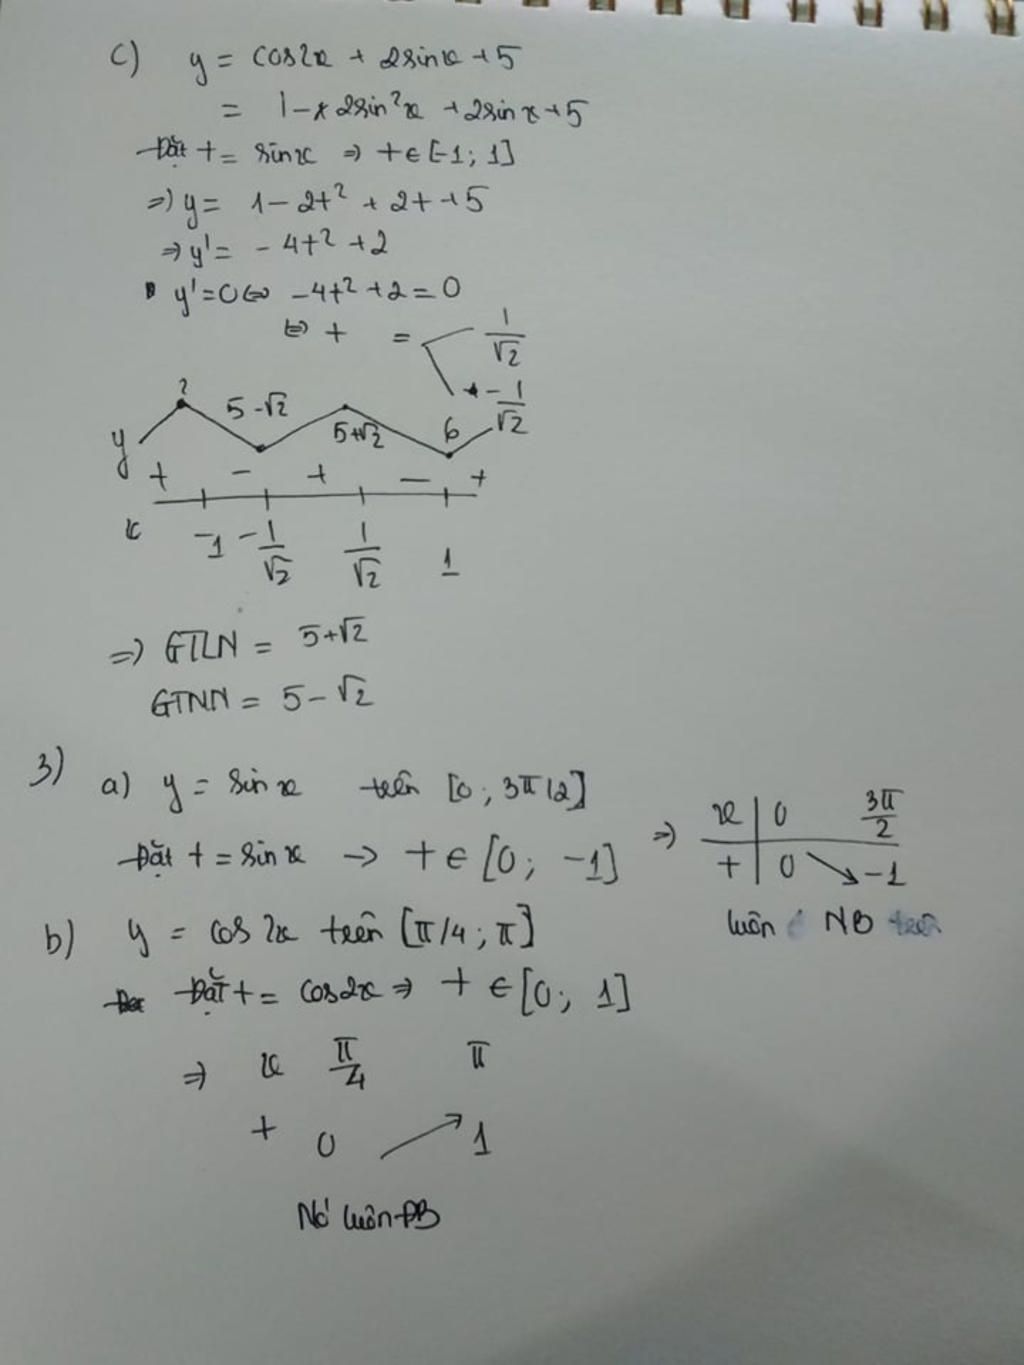 c) y = cos2x + 2sinx + 5
= 1 - x 2sin²x + 2sinx + 5
Đặt t = sinx ⇒ t ∈ [-1; 1]
⇒ y = 1 - 2t² + 2t + 5
⇒ y' = - 4t² + 2
y' = 0 ⇔ -4t² + 2 = 0
⇔ t = 1/√2
- 1/√2
? 5-√2 5+√2 6
y
+ - + - +
x -1 -1/√2 1/√2 1
⇒ GTLN = 5+√2
GTNN = 5-√2
3) a) y = sinx trên [0; 3π/2]
Đặt t = sinx → t ∈ [0; -1] ⇒ x | 0 3π/2
t | 0 ↘ -1
luôn NB trên
b) y = cos2x trên [π/4; π]
Đặt t = cos2x ⇒ t ∈ [0; 1]
⇒ x π/4 π
t 0 ↗ 1
Nó luôn ĐB